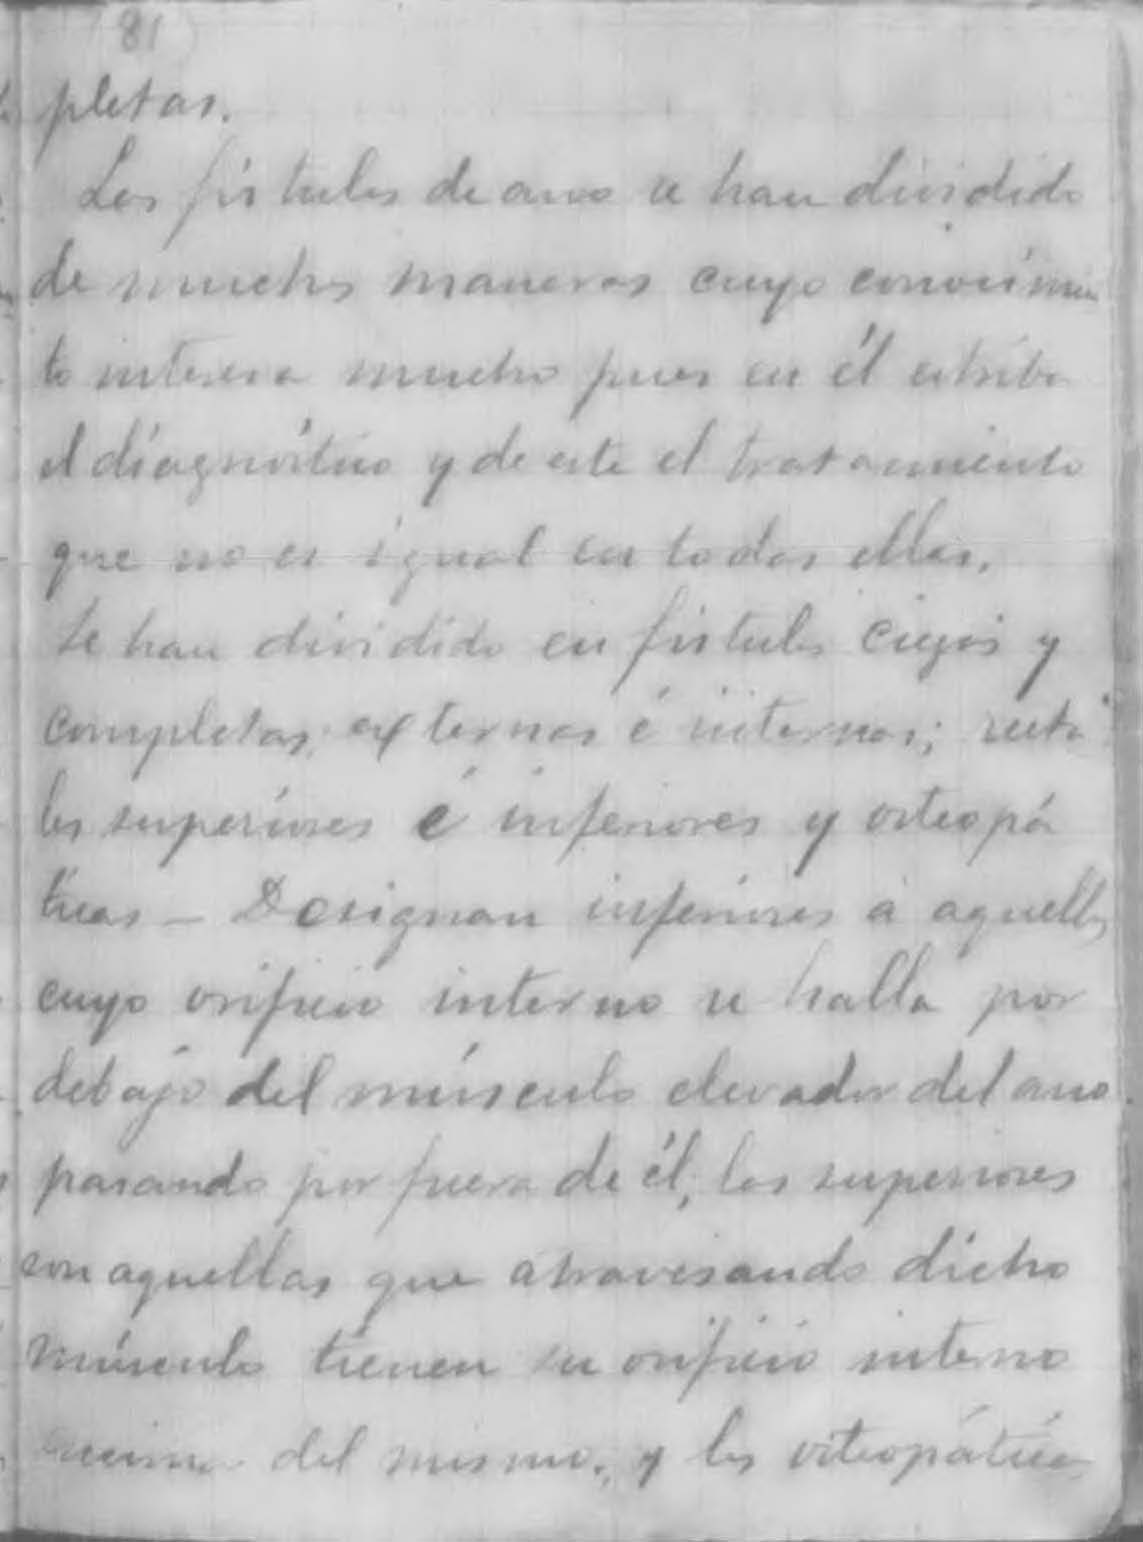 81
pletas.
Las fístulas de ano se han dividido
de muchas maneras cuyo conocimien
to interesa mucho pues en él estriba
el diagnóstico y de este el tratamiento
que no es igual en todas ellas.
Se han dividido en fístulas ciegas y
completas; externas é internas; recta
les superiores é inferiores y osteopá
ticas — Designan inferiores á aquellas
cuyo orificio interno se halla por
debajo del músculo elevador del ano
pasando por fuera de él, las superiores
son aquellas que atravesando dicho
músculo tienen su orificio interno
encima del mismo; y las osteopáticas